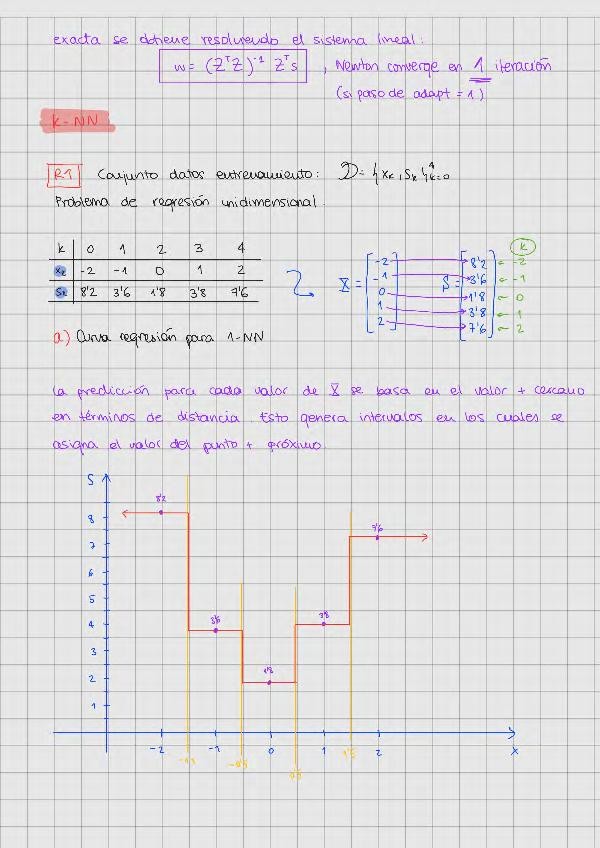 exacta se obtiene resolviendo el sistema lineal:
w = (ZᵀZ)⁻¹ Zᵀs , Newton converge en 1 iteración
(si paso de adapt = 1)
k-NN
R1 Conjunto datos entrenamiento: D = {xₖ, sₖ}⁴ₖ₌₀
Problema de regresión unidimensional.
k 0 1 2 3 4
xₖ -2 -1 0 1 2
sₖ 8'2 3'6 1'8 3'8 7'6
X = [-2 -1 0 1 2] S = [8'2 3'6 1'8 3'8 7'6]
k
-2
-1
0
1
2
a) Curva regresión para 1-NN
La predicción para cada valor de X se basa en el valor + cercano
en términos de distancia. Esto genera intervalos en los cuales se
asigna el valor del punto + próximo.
S
8'2
8
7'6
7
6
5
4
3'6
3'8
3
2
1'8
1
-2 -1 0 1 2 x
-1'5 -0'5 0'5 1'5